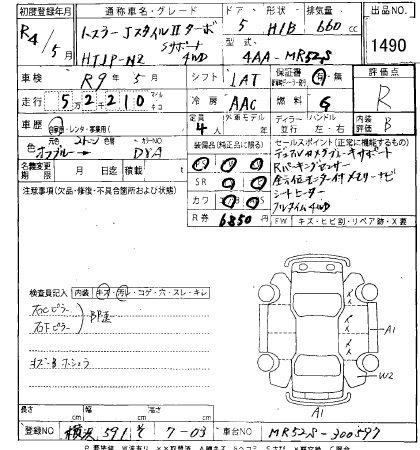 初度登録年月 通称車名・グレード ドア 形状 排気量 出品NO
R4年 5月 ハスラー JスタイルⅡターボ Sサポート 4WD 5 H/B 660cc 1490
型式 4AA-MR52S
車検 R9年5月 シフト 1AT 保証書 有・無 評価点
走行 52210 冷房 AAC 燃料 G R
車歴 自家用・レンタ・事業用 定員 4人 ディーラー 並行 ハンドル 左・右 内装 B
色 元色 オフブルー 2トーン カラーNO DVA
装備品(純正品に限る) セールスポイント(正常に機能するもの)
デュアルカメラブレーキサポート
Rパーキングセンサー
全方位モニター付メモリーナビ
シートヒーター
フルタイム4WD
名義変更期限 月 日迄 積載 t
SR
カワ
R券 6850円
注意事項(欠品・修復・不具合箇所および状態)
FW キズ・ヒビ割・リペア跡・X要
検査員記入 内装 キズ・汚レ・コゲ・穴・スレ・キレ
右Cピラー
右Fピラー
A1
W2
A1
長さ cm 幅 cm 高さ cm
登録NO 横浜 591 7-03 車台NO MR52S-300597